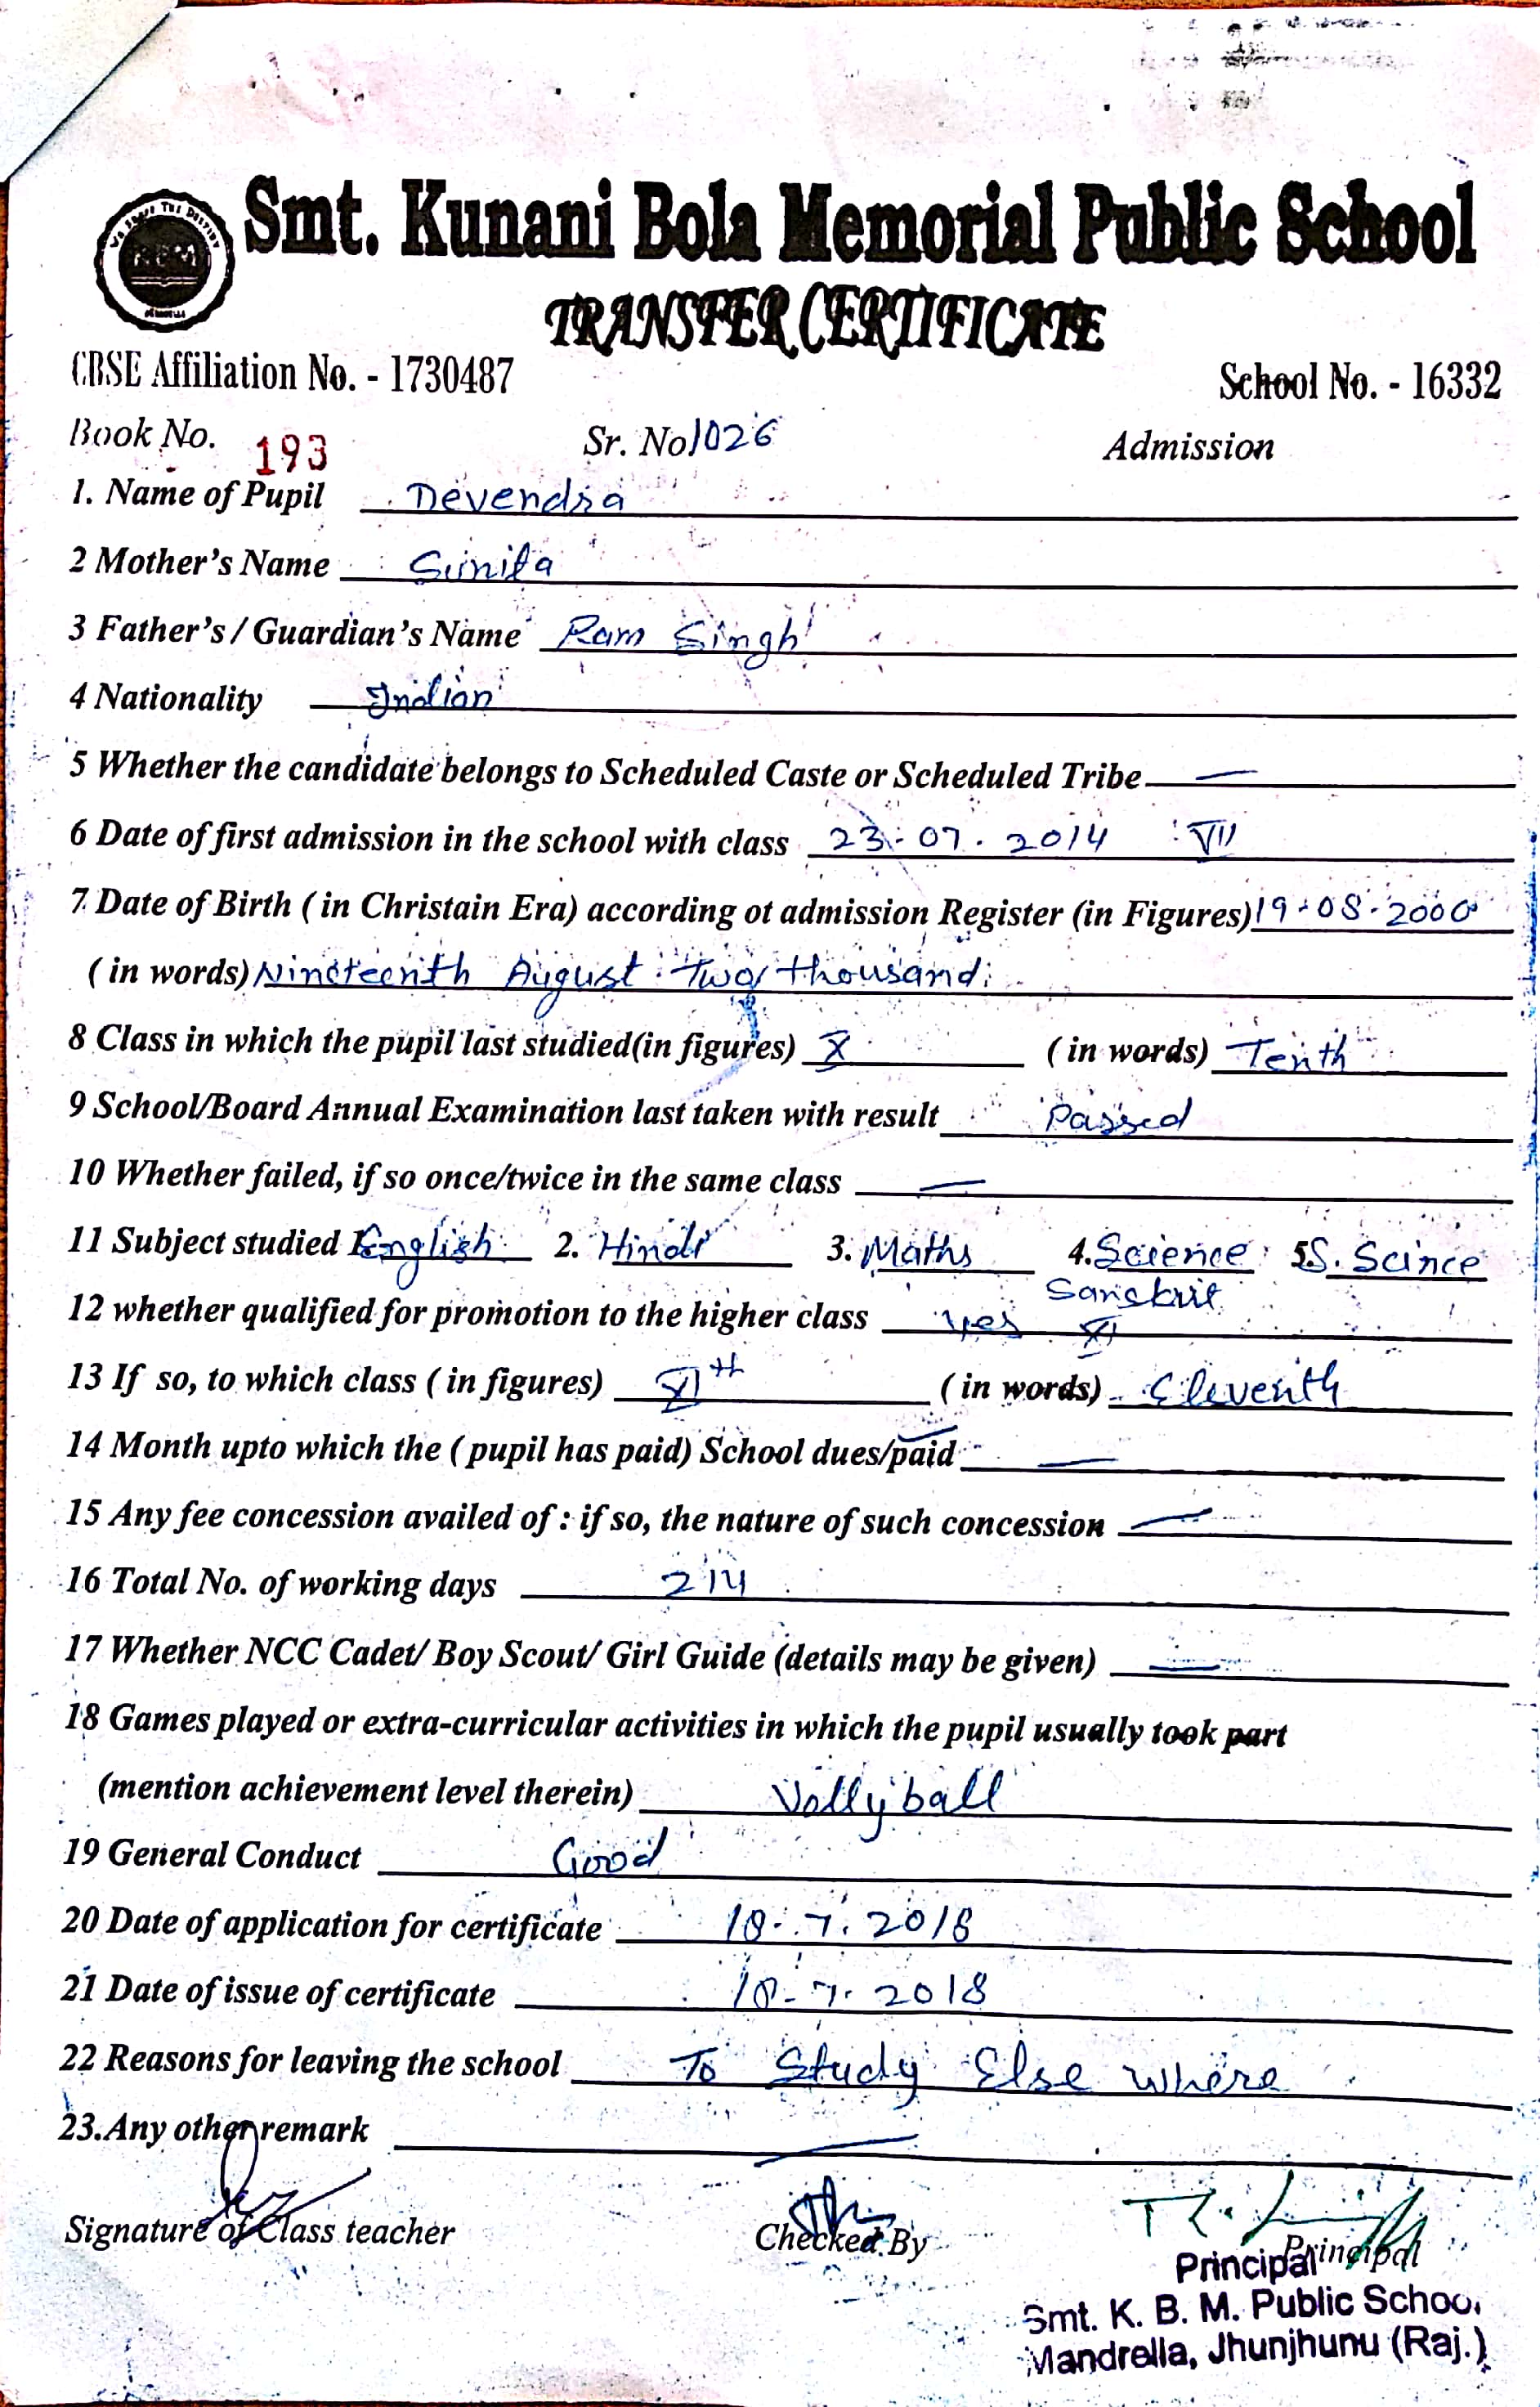 Smt. Kunani Bola Memorial Public School
TRANSFER CERTIFICATE
CBSE Affiliation No. - 1730487 School No. - 16332
Book No. 193 Sr. No 1026 Admission
1. Name of Pupil Devendra
2 Mother's Name Sunita
3 Father's / Guardian's Name Ram Singh
4 Nationality Indian
5 Whether the candidate belongs to Scheduled Caste or Scheduled Tribe —
6 Date of first admission in the school with class 23-07-2014 VII
7 Date of Birth ( in Christain Era) according ot admission Register (in Figures) 19-08-2000
( in words) Nineteenth August Two thousand
8 Class in which the pupil last studied(in figures) X ( in words) Tenth
9 School/Board Annual Examination last taken with result Passed
10 Whether failed, if so once/twice in the same class —
11 Subject studied 1. English 2. Hindi 3. Maths 4. Science 5. S. Scince
Sanskrit
12 whether qualified for promotion to the higher class yes XI
13 If so, to which class ( in figures) XIth ( in words) Eleventh
14 Month upto which the ( pupil has paid) School dues/paid —
15 Any fee concession availed of : if so, the nature of such concession —
16 Total No. of working days 214
17 Whether NCC Cadet/ Boy Scout/ Girl Guide (details may be given) —
18 Games played or extra-curricular activities in which the pupil usually took part
(mention achievement level therein) Vollyball
19 General Conduct Good
20 Date of application for certificate 10-7-2018
21 Date of issue of certificate 10-7-2018
22 Reasons for leaving the school To Study Else where
23.Any other remark —
Signature of Class teacher Checked By Principal
Principal
Smt. K. B. M. Public School
Mandrella, Jhunjhunu (Raj.)